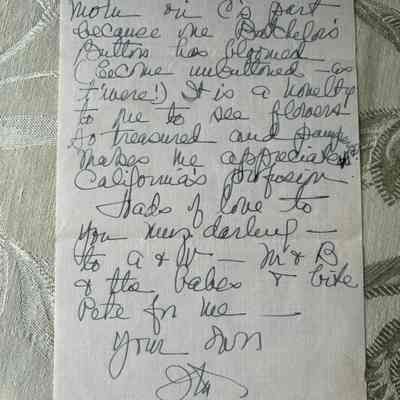 on C's part
because one Bachelor's
Button has bloomed
(Become unbuttoned – as
t'were!) It is a novelty
to me to see flowers
so treasured and
makes me appreciate
California's profusion.
Loads of love to
you my darling —
to A & W — M & B
& the babes & bite
Pete for me —
Your own